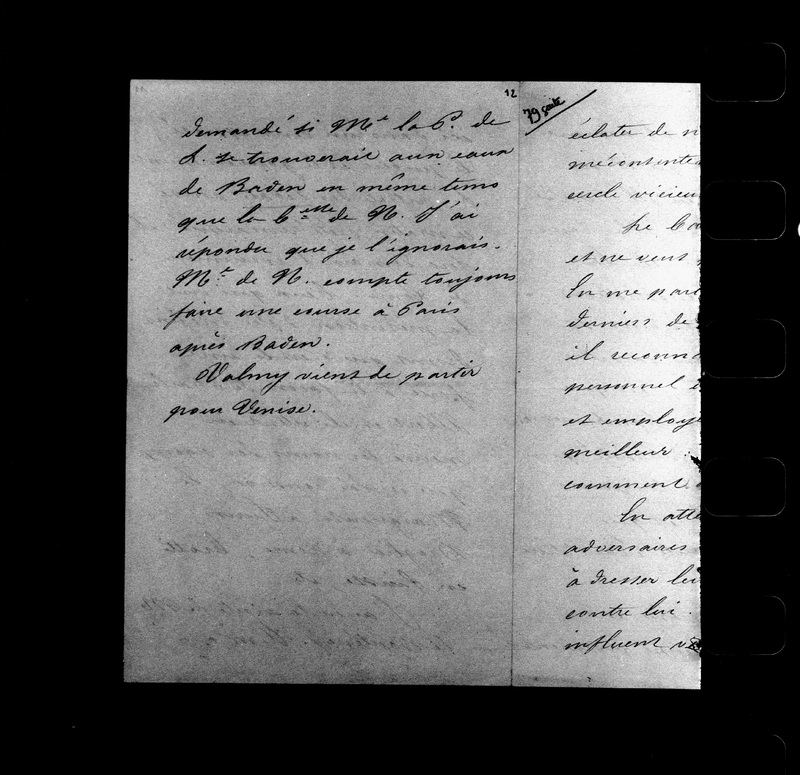 12
demandé si Mᵉ la P. de
L. se trouverait aux eaux
de Baden en même tems
que la Cᵉˢˢᵉ de N. J'ai
répondu que je l'ignorais.
Mᵉ de N. compte toujours
faire une course à Paris
après Baden.
Valmy vient de partir
pour Venise.
79 suite
éclater de n
mécontente
cercle vicieu
et ne veut
En me par
derniers de
il reconn
personnel
et employ
meilleur
comment
En atte
adversaires
à dresser leu
contre lui.
influent